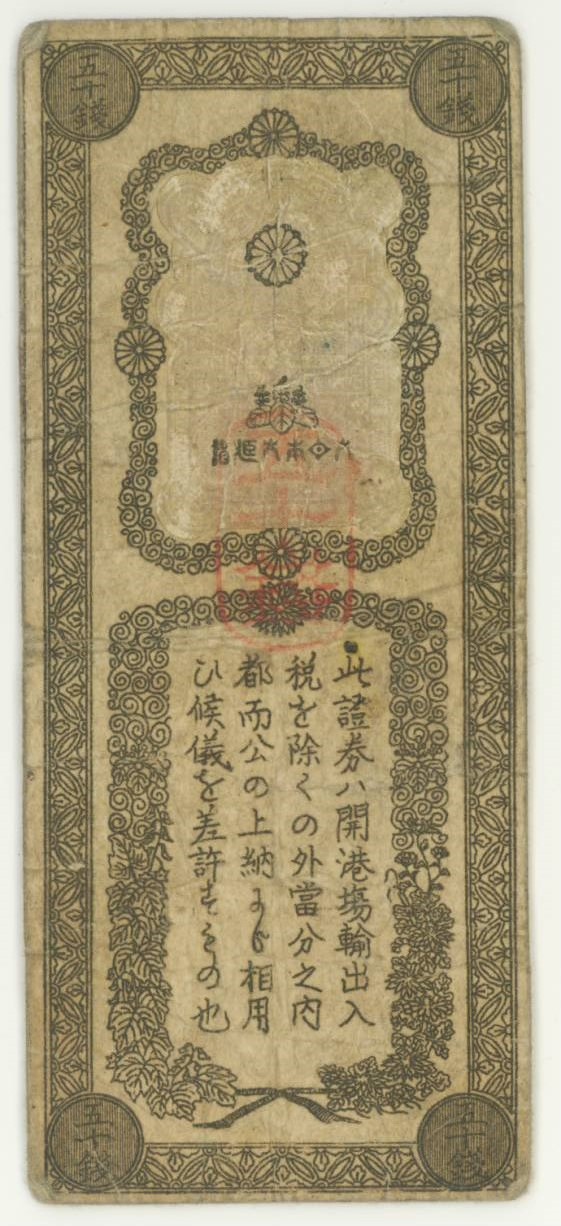 五十錢
五十錢
此證券ハ開港場輸出入
税を除くの外當分之内
都而公の上納にも相用
ひ候儀を差許すもの也
五十錢
五十錢